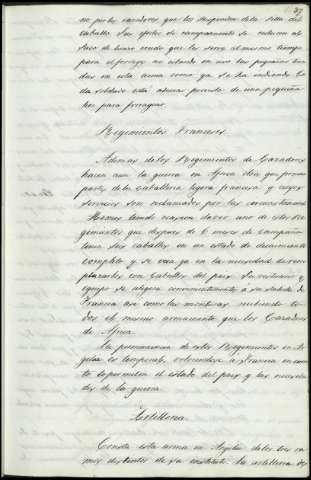 37
no por los cazadores que los suspenden de la silla del
caballo. Los efectos de campamento se reducen al
saco de lienzo crudo que les sirve al mismo tiempo
para el forrage no estando en uso las pequeñas tien
das en esta arma como ya se ha indicado. Ca
da soldado está ademas provisto de una pequeña
hoz para forragear.
Regimientos Franceses.
Ademas de los Regimientos de Cazadores
hacen aun la guerra en Africa otros que forman
parte de la Caballeria ligera francesa y cuyos
servicios son reclamados por las circunstancias.
Hemos tenido ocasion de ver uno de estos Re
gimientos que despues de 6 meses de campaña
tenia sus caballos en un estado de decaimiento
completo y se veia ya en la necesidad de reem
plazarlos con caballos del pais. Su vestuario y
equipo se aligera convenientemente á su salida de
Francia asi como las monturas recibiendo to
dos el mismo armamento que los Cazadores
de Africa.
La permanencia de estos Regimientos en Ar
gelia es temporal, volviendose á Francia en cuan
to lo permiten el estado del pais y las necesida
des de la guerra.
Artilleria.
Consta esta arma en Argelia de los tres ra
mos distintos de su instituto. La artilleria de